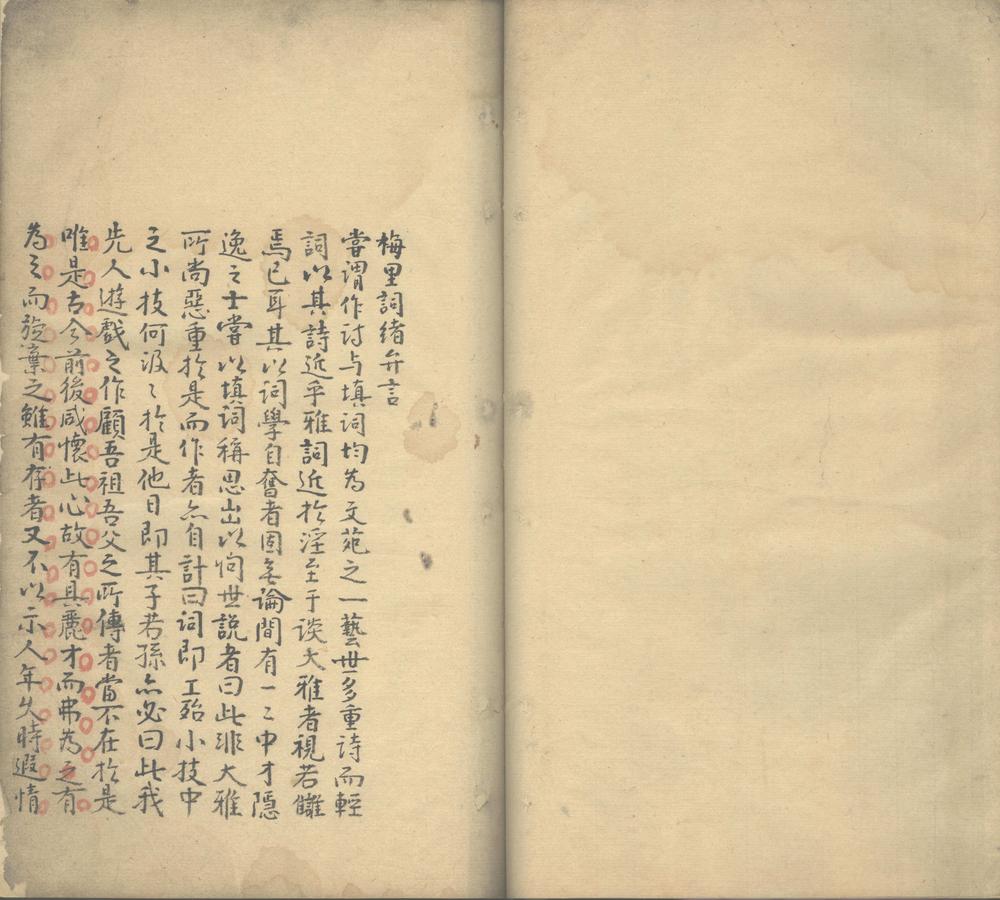 梅里詞緒弁言
嘗謂作诗与填词均为文苑之一藝世多重詩而輕
詞以其詩近乎雅詞近於淫至于谈大雅者視若讎
焉已耳其以词學自奮者固無論間有一二中才隱
逸之士嘗以填詞稱思出以问世説者曰此非大雅
所尚惡重於是而作者亦自計曰词即工殆小技中
之小技何汲〻於是他日即其子若孫亦必曰此我
先人遊戲之作顧吾祖吾父之所傳者當不在於是
唯是古今前後咸懷此心故有具麗才而弗为之有
为之而旋棄之雖有存者又不以示人年久時遐情